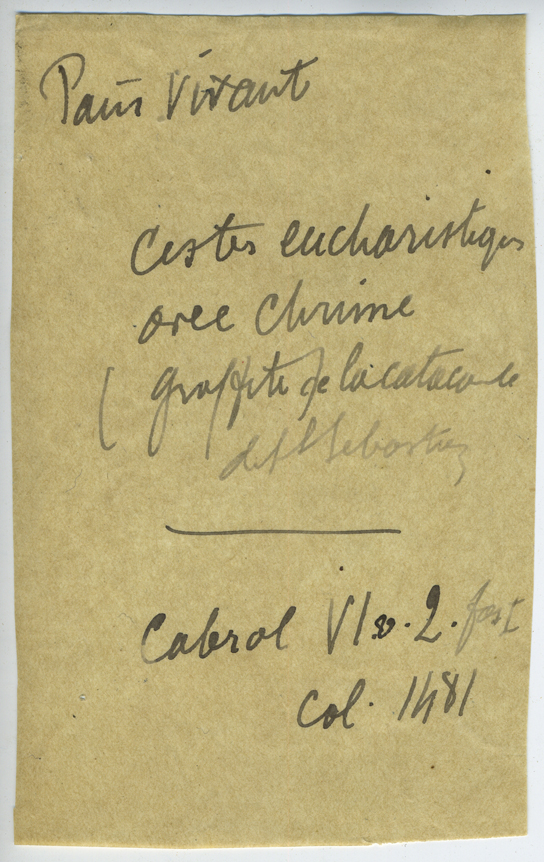 Pain Vivant
Cistes eucharistiques
avec Chrisme
( graffite de la catacombe
de St Sebastien
Cabrol VI v. 2. fasc
col. 1481